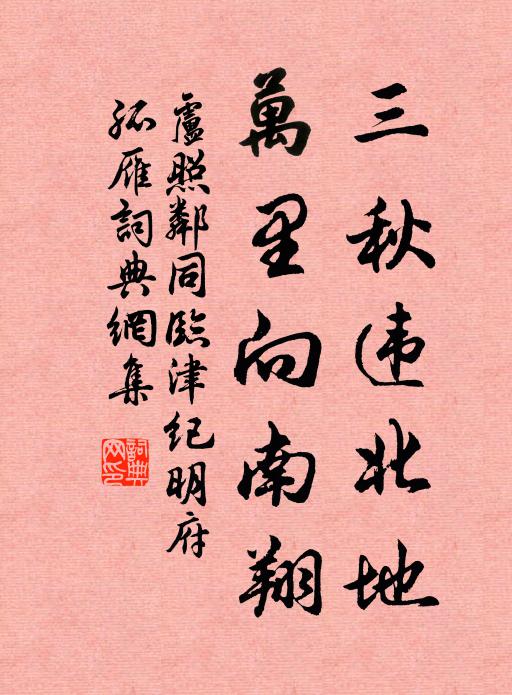 三秋违北地
萬里向南翔
盧照鄰同臨津纪明府
孤雁詞典網集
詞典
网印